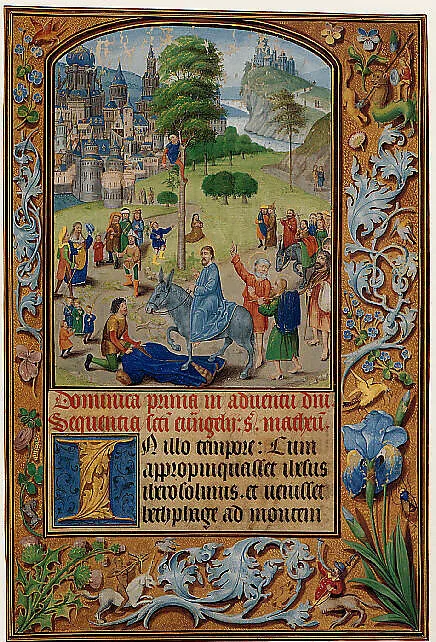 Dominica prima in adventu dni
Sequentia scti eungely: S. matheu.
IN illo tempore: Cum
appropinquasset ihesus
iherosolimis. et venisset
bethphage ad montem